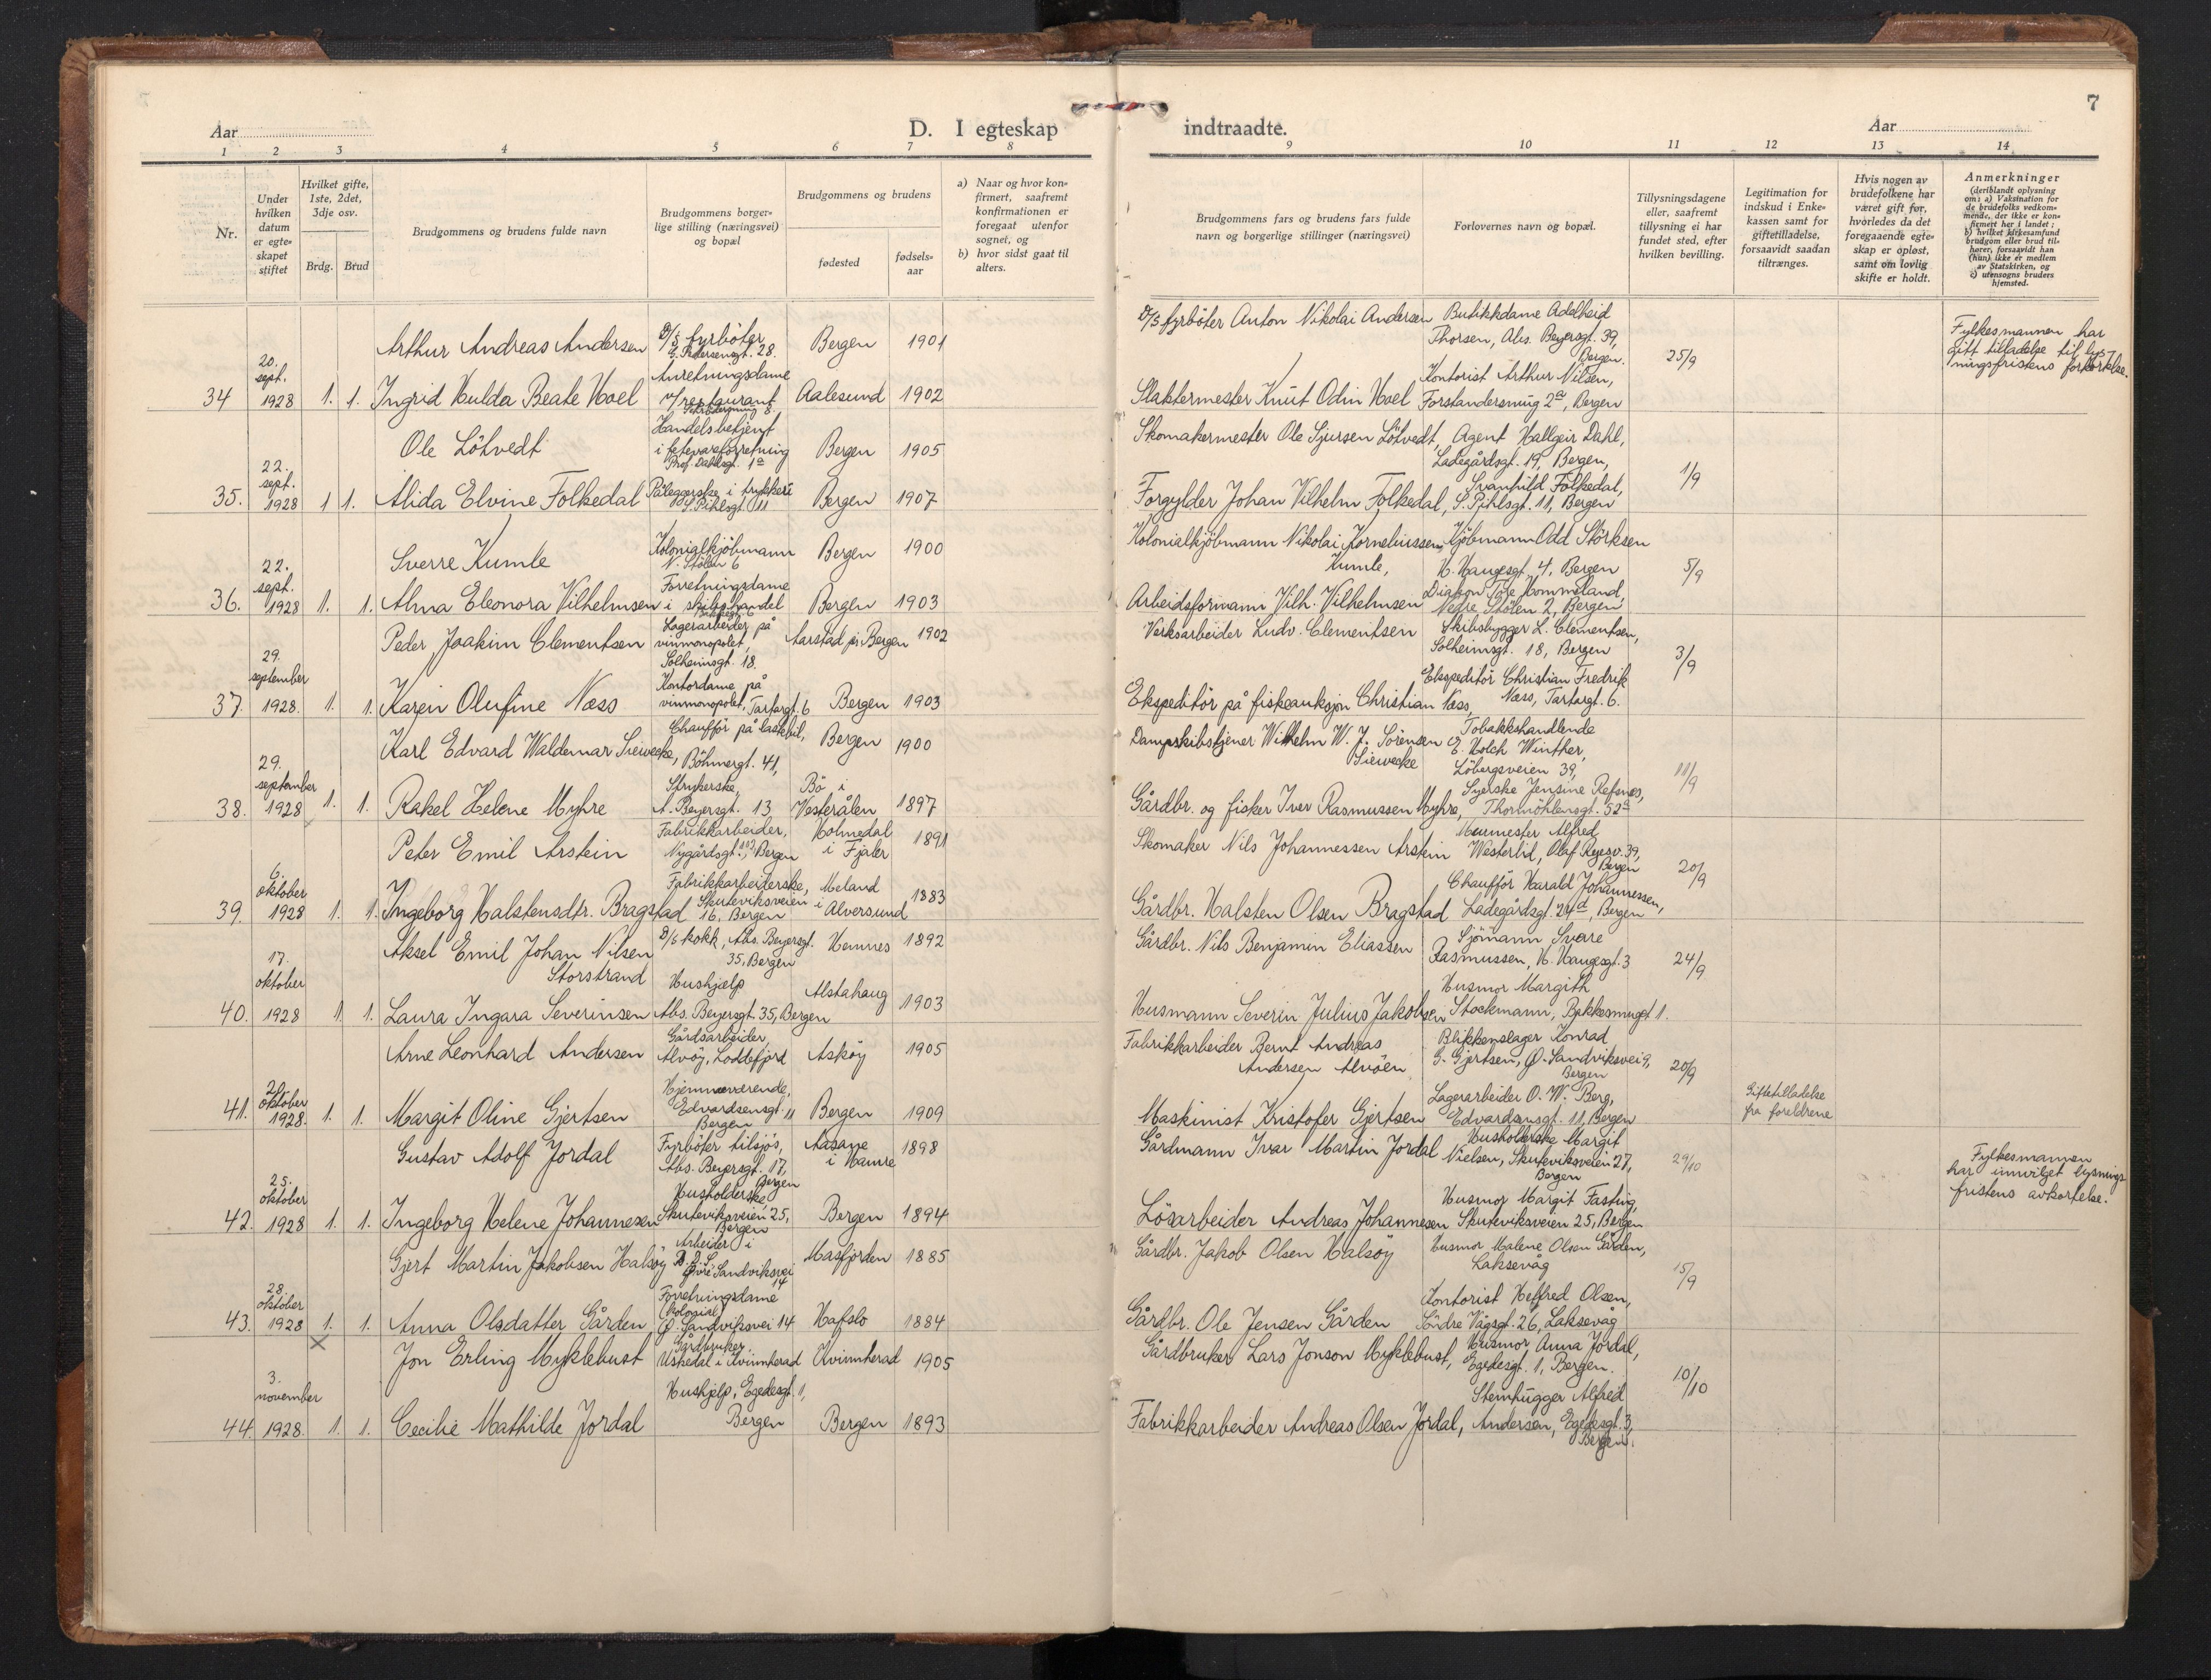 7
Aar
D. I egteskap
indtraadte.
Aar
1 2 3 4 5 6 7 8 9 10 11 12 13 14
Nr.
Under hvilken datum er egteskapet stiftet
Hvilket gifte, 1ste, 2det, 3dje osv.
Brdg. Brud
Brudgommens og brudens fulde navn
Brudgommens borgerlige stilling (næringsvei) og bopæl
Brudgommens og brudens
fødested
fødselsaar
a) Naar og hvor konfirmert, saafremt konfirmationen er foregaat utenfor sognet, og
b) hvor sidst gaat til alters.
Brudgommens fars og brudens fars fulde navn og borgerlige stillinger (næringsvei)
Forlovernes navn og bopæl.
Tillysningsdagene eller, saafremt tillysning ei har fundet sted, efter hvilken bevilling.
Legitimation for indskud i Enkekassen samt for giftetilladelse, forsaavidt saadan tiltrænges.
Hvis nogen av brudefolkene har været gift før, hvorledes da det foregaaende egteskap er opløst, samt om lovlig skifte er holdt.
Anmerkninger
(deriblandt oplysning om: a) Vaksination for de brudefolks vedkommende, der ikke er konfirmert her i landet; b) hvilket kirkesamfund brudgom eller brud tilhører, forsaavidt han (hun) ikke er medlem av Statskirken, og c) utensogns bruders hjemsted.
34 20. sept. 1928 1. 1.
Arthur Andreas Andersen D/S fyrböter, C. Pedersensgt. 28. Bergen 1901
D/S fyrböter Anton Nikolai Andersen
Butikkdame Adelheid Thorsen, Abs. Beyersgt. 39, Bergen.
25/9
Fylkesmannen har gitt tilladelse til lysningsfristens forkortelse.
Ingrid Hulda Beate Hoel Anretningsdame v/restaurant Aalesund 1902
Slaktermester Knut Odin Hoel
Kontorist Arthur Nilsen, Forstandersmug 2a, Bergen
35. 22. sept. 1928 1 1.
Ole Lötvedt Handelsbetjent i fetevareforretning Prof. Dahlsgt. 1a Bergen 1905
Skomakermester Ole Sjursen Lötvedt,
Agent Hallgeir Dahl, Ladegårdsgt. 19, Bergen,
1/9
Alida Elvine Folkedal Påleggerske i trykkeri S. Pihlsgt. 11 Bergen 1907
Forgylder Johan Vilhelm Folkedal,
Svanhild Folkedal, S. Pihlsgt. 11, Bergen
36. 22. sept. 1928 1. 1.
Sverre Kumle Kolonialkjöbmann N. Stölen 6 Bergen 1900
Kolonialkjöbmann Nikolai Korneliussen Kumle,
Kjöbmann Odd Störksen H. Haugesgt. 4, Bergen
5/9
Alma Eleonora Vilhelmsen Forretningsdame i skibshandel Bergen 1903
Arbeidsformann Vilh. Vilhelmsen
Diakon Tore Hommeland, Nedre Stölen 2, Bergen
37. 29. september 1928. 1. 1.
Peder Joakim Clementsen Lagerarbeider på vinmonopolet, Solheimsgt. 18. Aarstad pr. Bergen 1902
Verksarbeider Ludv. Clementsen
Skibsbygger L. Clementsen, Solheimsgt. 18, Bergen
3/9
Karen Olufine Næss Kontordame på vinmonopolet, Tartargt. 6 Bergen 1903
Ekspeditör på fiskeauksjon Christian Næss,
Ekspeditör Christian Fredrik Næss, Tartargt. 6.
38. 29. september 1928 1. 1.
Karl Edvard Waldemar Siewecke, Chaufför på lastebil, Böhmergt. 41, Bergen 1900
Dampskibstjener Wilhelm W. J. Sörensen Siewecke
Tobakkshandlende E. Holch Winther, Löbergsveien 39,
11/9
Rakel Helene Myhre Strykerske, A. Beyersgt. 13 Bö i Vesterålen 1897
Gårdbr. og fisker Iver Rasmussen Myhre,
Syerske Jensine Refsnes, Thormöhlensgt. 52a
39. 6. oktober 1928 1. 1.
Peter Emil Arstein Fabrikkarbeider, Nygårdsgt. 103, Bergen Holmedal i Fjaler 1891
Skomaker Nils Johannessen Arstein
Murmester Alfred Westerlid, Olaf Ryesv. 39, Bergen
20/9
Ingeborg Halstensdtr. Bragstad Fabrikkarbeiderske, Skuteviksveien 16, Bergen Meland i Alversund 1883
Gårdbr. Halsten Olsen Bragstad
Chaufför Harald Johannessen, Ladegårdsgt. 24d, Bergen
40. 17. oktober 1928 1 1.
Aksel Emil Johan Nilsen Storstrand D/S kokk, Abs. Beyersgt. 35, Bergen Hemnes 1892
Gårdbr. Nils Benjamin Eliassen
Sjömann Svare Rasmussen, H. Haugesgt. 3
24/9
Laura Ingara Severinsen Hushjelp Abs. Beyersgt. 35, Bergen Alstahaug 1903
Husmann Severin Julius Jakobsen
Husmor Margith Stockmann, Bakkesmuget 1.
41. 20. oktober 1928. 1. 1.
Arne Leonhard Andersen Gårdsarbeider, Alvöy, Loddefjord Asköy 1905
Fabrikkarbeider Bernt Andreas Andersen Alvöen
Blikkenslager Konrad G. Gjertsen, Ö. Sandviksvei 9, Bergen
20/9
Giftetilladelse fra foreldrene
Margit Oline Gjertsen Hjemmeværende, Edvardsensgt. 11 Bergen Bergen 1909
Maskinist Kristofer Gjertsen
Lagerarbeider O. W. Berg, Edvardsensgt. 11, Bergen
42. 25. oktober 1928 1. 1.
Gustav Adolf Jordal Fyrböter tilsjös, Abs. Beyersgt. 17, Bergen Aasane i Hamre 1898
Gårdmann Ivar Martin Jordal
Husholderske Margit Nielsen, Skuteviksveien 27, Bergen
29/10
Fylkesmannen har innvilget lysningsfristens avkortelse.
Ingeborg Helene Johannesen Husholderske, Skuteviksveien 25, Bergen Bergen 1894
Lösarbeider Andreas Johannesen
Husmor Margit Fasting, Skuteviksveien 25, Bergen
43. 28. oktober 1928 1. 1.
Gjert Martin Jakobsen Halsöy Arbeider i Övre Sandviksvei 14 Masfjorden 1885
Gårdbr. Jakob Olsen Halsöy
Husmor Malene Olsen Gården, Laksevåg
15/9
Anna Olsdatter Gården Forretningsdame (kolonial) Ö. Sandviksvei 14 Hafslo 1884
Gårdbr. Ole Jensen Gården
Kontorist Helfred Olsen, Söndre Vågsgt. 26, Laksevåg
44. 3. november 1928. 1. 1.
X
Jon Erling Myklebust Gårdbruker, Uskedal i Kvinnherad Kvinnherad 1905
Gårdbruker Lars Jonson Myklebust,
Husmor Anna Jordal, Egedesgt. 1, Bergen.
10/10
Cecilie Mathilde Jordal Hushjelp, Egedesgt. 1, Bergen Bergen 1893
Fabrikkarbeider Andreas Olsen Jordal,
Stenhugger Alfred Andersen, Egedesgt. 3, Bergen.